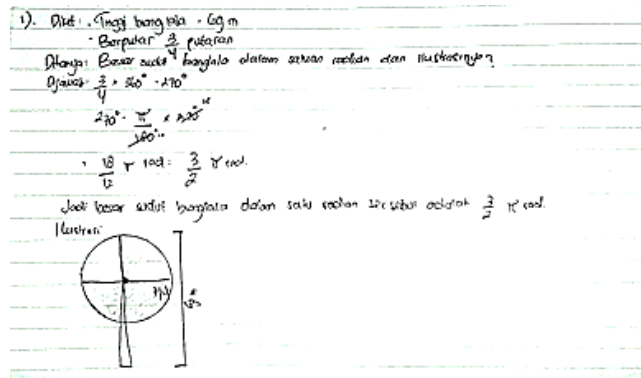 1). Diket : . Tinggi bianglala = 69 m
- Berputar 3/4 putaran
Ditanya : Besar sudut bianglala dalam satuan radian dan ilustrasinya?
Dijawab : 3/4 × 360° = 270°
270° = π/180° × 270
= 18/12 π rad = 3/2 π rad.
Jadi besar sudut bianglala dalam satu radian tersebut adalah 3/2 π rad.
Ilustrasi